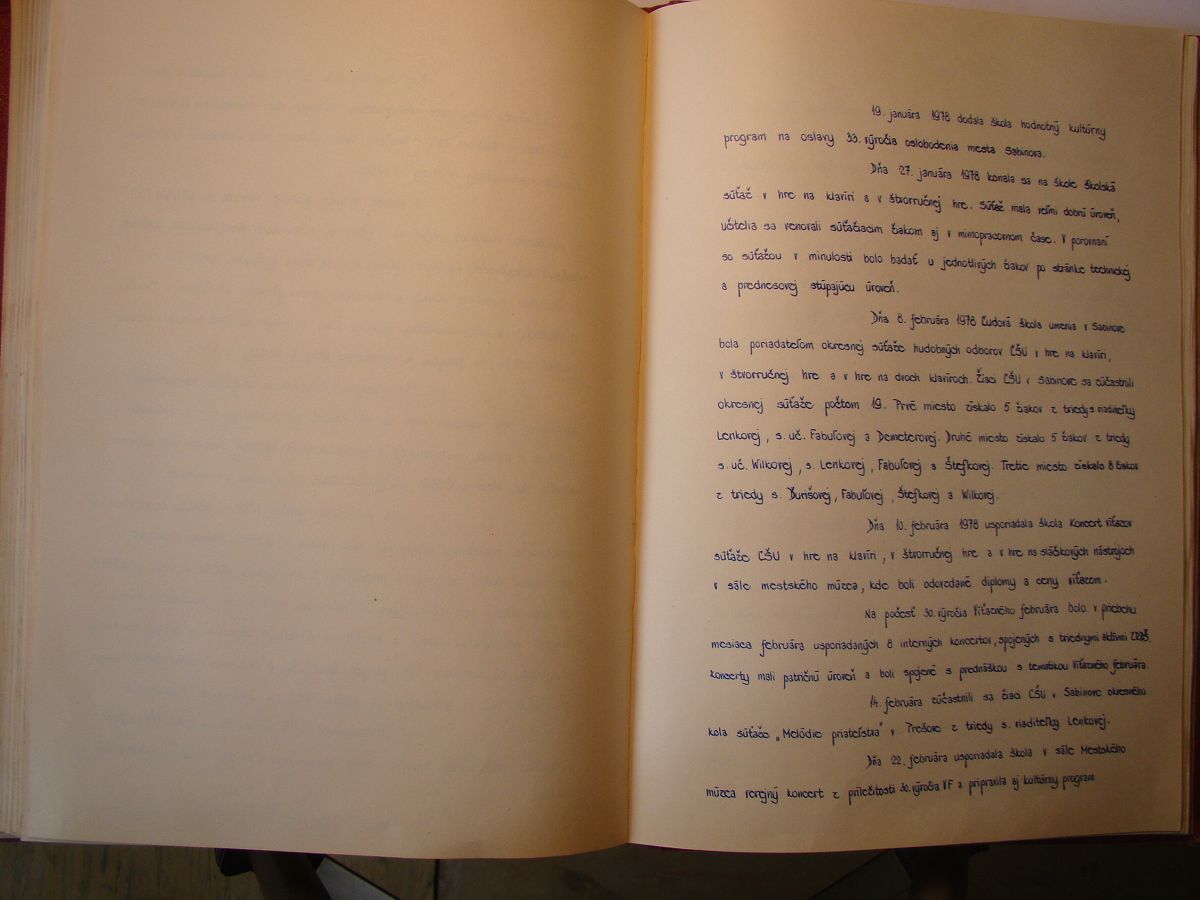 19. januára 1978 dodala škola hodnotný kultúrny
program na oslavy 33. výročia oslobodenia mesta Sabinova.
Dňa 27. januára 1978 konala sa na škole školská
súťaž v hre na klavíri a v štvorručnej hre. Súťaž mala veľmi dobrú úroveň,
učitelia sa venovali súťažiacim žiakom aj v mimopracovnom čase. V porovnaní
so súťažou v minulosti bolo badať u jednotlivých žiakov po stránke technickej
a prednesovej stúpajúcu úroveň.
Dňa 8. februára 1978 Ľudová škola umenia v Sabinove
bola poriadateľom okresnej súťaže hudobných odborov ĽŠU v hre na klavíri,
v štvorručnej hre a v hre na dvoch klavíroch. Žiaci ĽŠU v Sabinove sa zúčastnili
okresnej súťaže počtom 19. Prvé miesto získalo 5 žiakov z triedy s. riaditeľky
Lenkovej, s. uč. Fabuľovej a Demeterovej. Druhé miesto získalo 5 žiakov z triedy
s. uč. Wilkovej, s. Lenkovej, Fabuľovej a Štefkovej. Tretie miesto získalo 8 žiakov
z triedy s. Ďurišovej, Fabuľovej, Štefkovej a Wilkovej.
Dňa 10. februára 1978 usporiadala škola Koncert víťazov
súťaže ĽŠU v hre na klavíri, v štvorručnej hre a v hre na sláčikových nástrojoch
v sále mestského múzea, kde boli odovzdané diplomy a ceny víťazom.
Na počesť 30. výročia Víťazného februára bolo v priebehu
mesiaca februára usporiadaných 8 interných koncertov, spojených s triednymi aktívmi ZRPŠ.
Koncerty mali patričnú úroveň a boli spojené s prednáškou s tematikou Víťazného februára.
14. februára zúčastnili sa žiaci ĽŠU v Sabinove okresného
kola súťaže „Melódie priateľstva" v Prešove z triedy s. riaditeľky Lenkovej.
Dňa 22. februára usporiadala škola v sále Mestského
múzea verejný koncert z príležitosti 30. výročia VF a pripravila aj kultúrny program